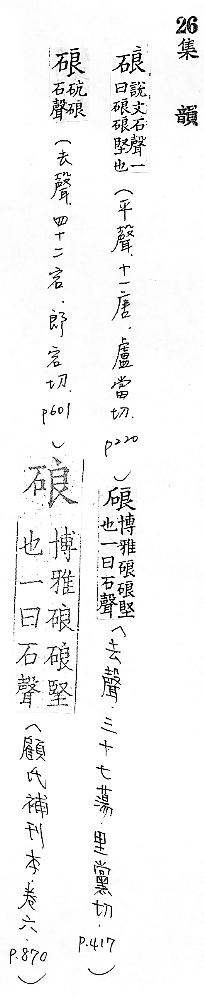 26集 韻
硠說文石聲一
曰硠硠堅也
(平聲.十一唐.盧當切. p220)
硠博雅硠硠堅
也一曰石聲
(去聲.三十七蕩.里黨切. p.417)
硠砊硠
石聲
(去聲.四十二宕.郎宕切. p601)
硠
博雅硠硠堅
也一曰石聲
(顧氏補刊本.卷六. p.870)